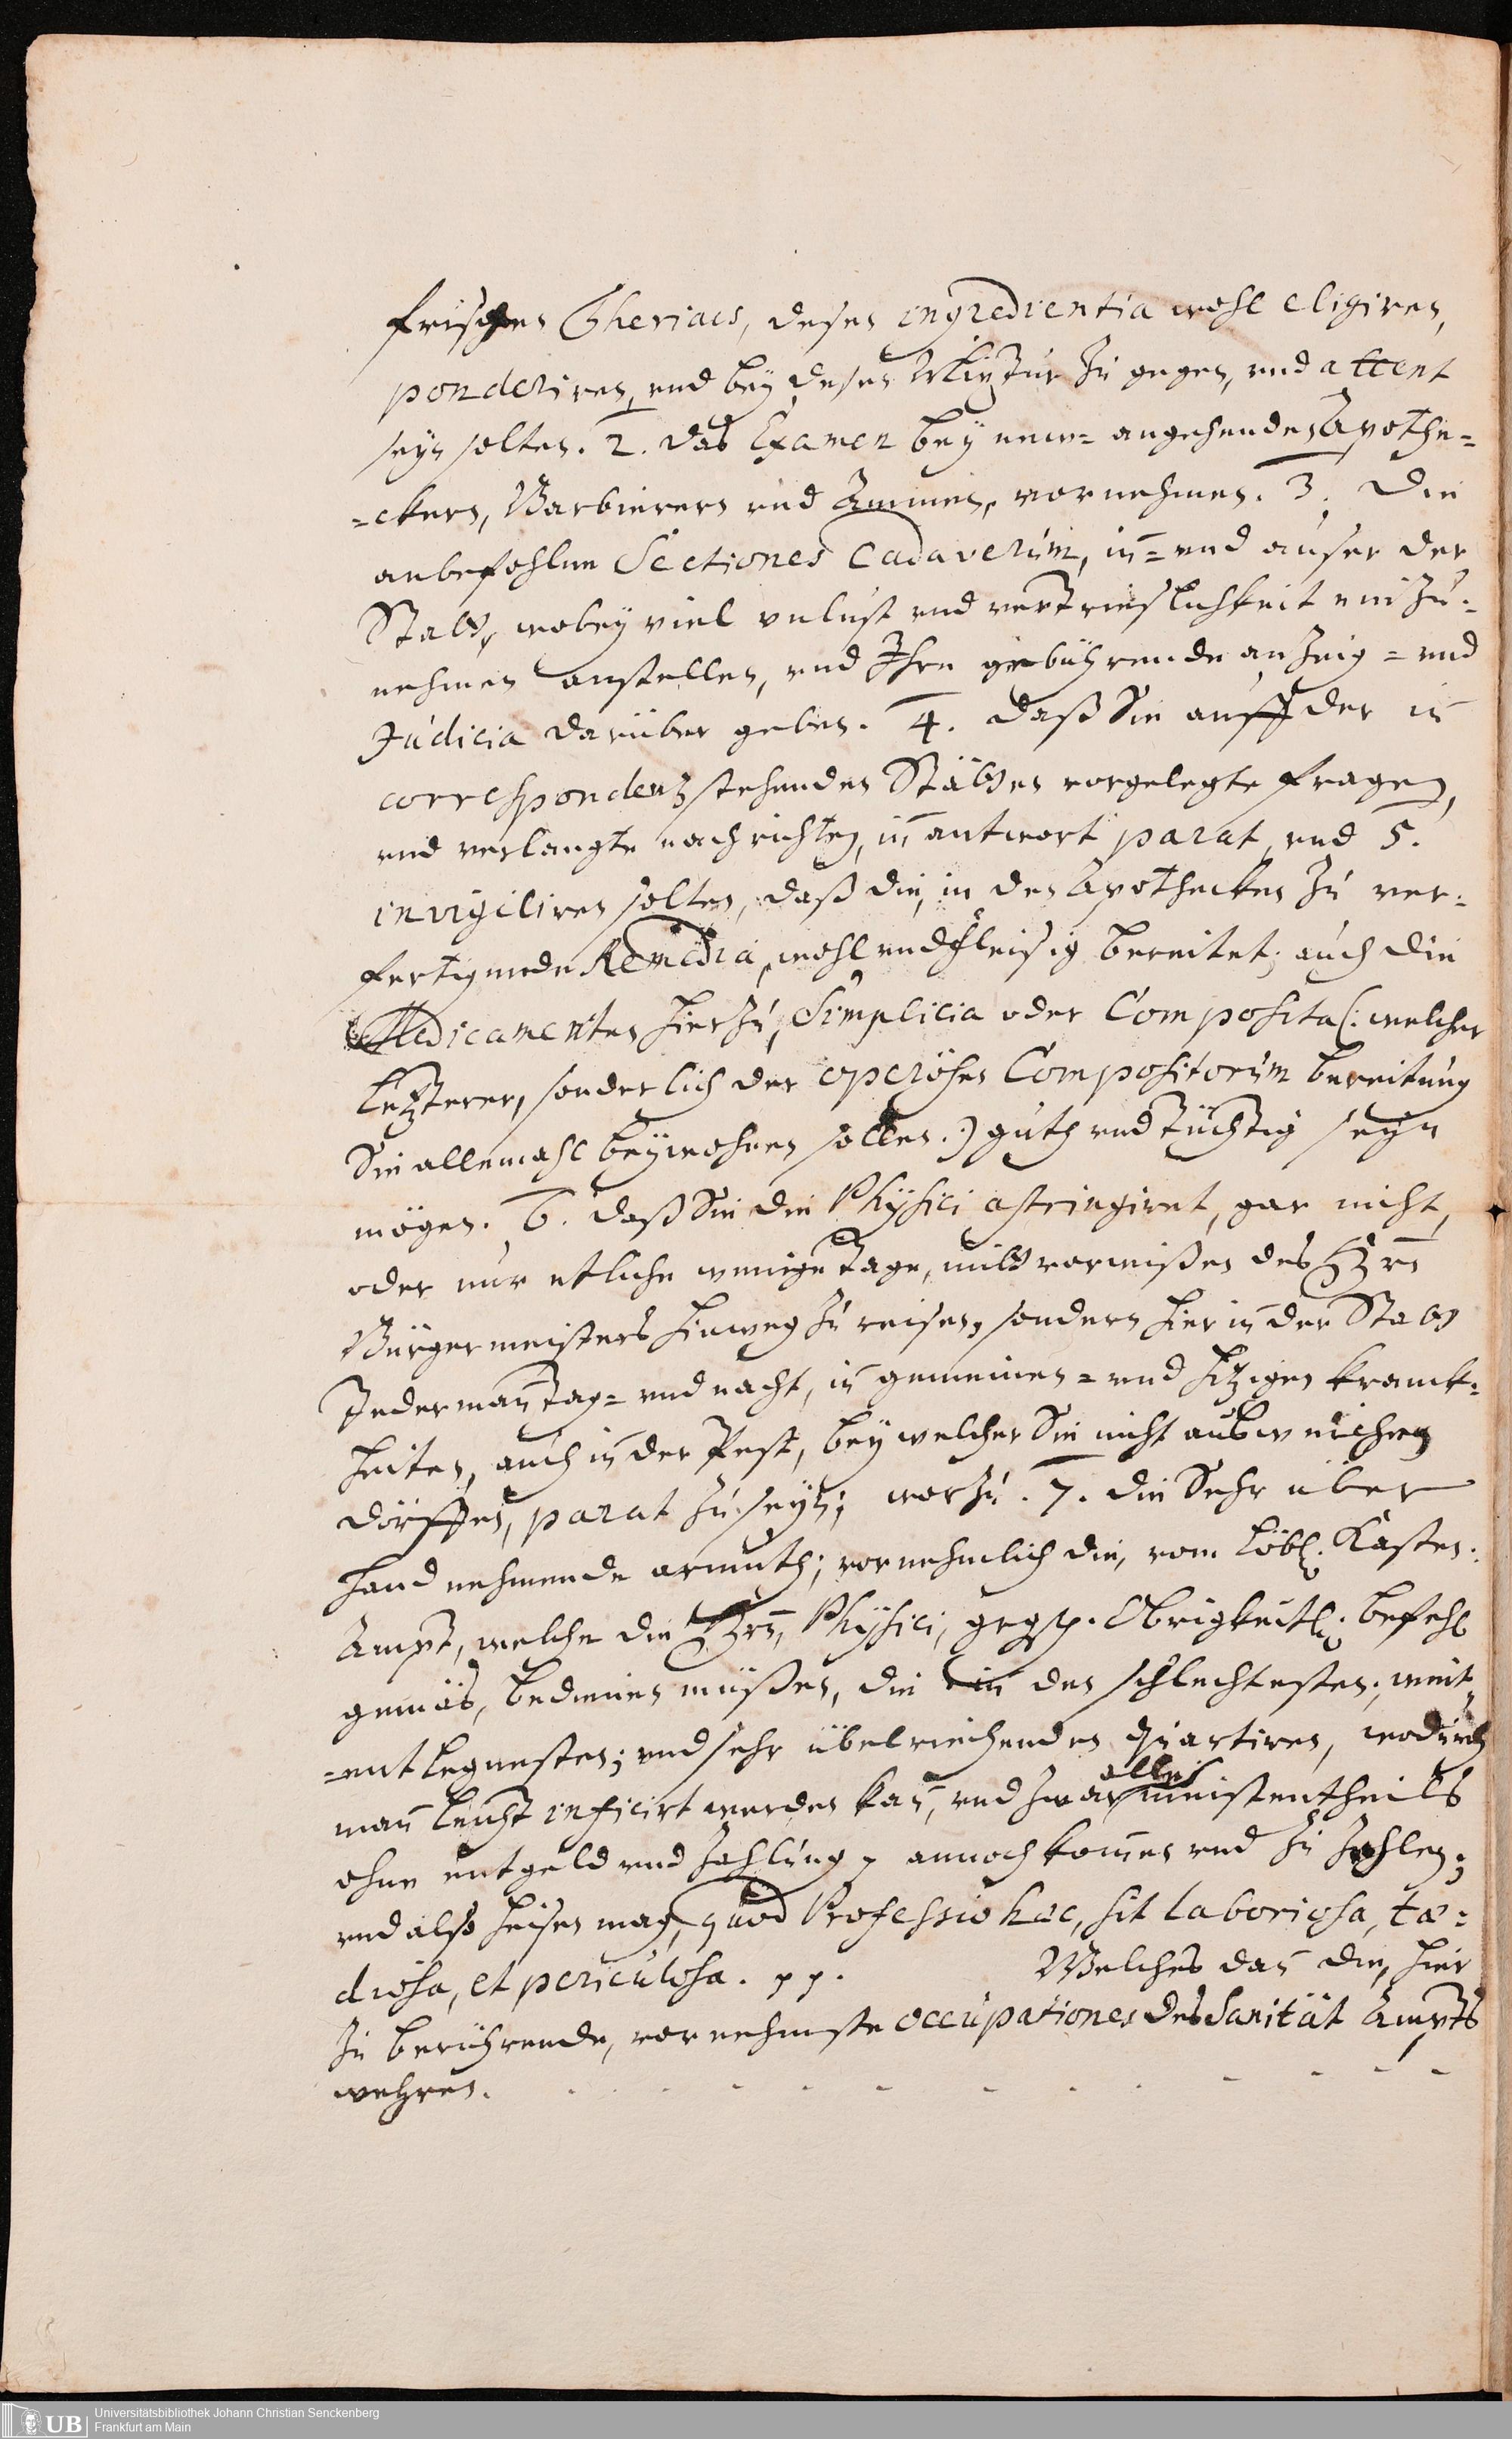 frischen Theriacs, deßen ingredientia wohl eligiren,
ponderiren, und bey deßen Mixtur zu gegen, und attent
seyn solten. 2. das Examen bey new= angehenden Apothe=
=ckern, Barbierern und Ammen, vornehmen. 3. Die
anbefohlne Sectiones Cadaverum, in= und auser der
Statt, wobey viel unlust und verdrieslichkeit einzu=
nehmen anstellen, und Ihre gebührende anzeig= und
Judicia darüber geben. 4. daß Sie auff der in
correspondenz stehenden Stätten vorgelegte fragen,
und verlangte nachrichten, in antwort parat, und 5.
invigiliren solten, daß die, in den Apothecken zu ver=
fertigende Remedia, wohl und fleisig bereitet; auch die
Medicamenten hierzu, Simplicia oder Composita (: welcher
letzterer, sonderlich der operosen Compositorum bereitung
Sie allemahl beywohnen sollen :) guth und tüchtig seyn
mögen. 6. daß Sie die Physici astringiret, gar nicht,
oder nur etliche wenige Tage, mitt vorwißen des Hrn
Bürgermeisters hinweg zu reisen, sondern hier in der Statt
Jederman tag= und nacht, in gemeinen= und hizigen kranck=
heiten, auch in der Pest, bey welcher Sie nicht ausweichen
dörffen, parat zu seyn; worzu. 7. die Sehr über
hand nehmende armuth; vornehmlich die, vom Löbl. Kasten=
Ampt, welche die Hrn. Physici, Obrigkeitl. befehl
gemäs, bedienen müßen, die in den schlechtesten; weit
=entlegnesten; und sehr übelriechenden quartiren, wodurch
man leicht inficirt werden kan, und zwar alles meistentheils
ohne entgeld und zahlung, annoch komen und zu zahlen;
und also heisen mag, quod Professio hæc, sit laboriosa, tæ=
diosa, et periculosa. pp. Welches dan die, hier
zu berührende, vornehmste occupationes des Sanität Ampts
wehren.
UB
Universitätsbibliothek Johann Christian Senckenberg
Frankfurt am Main